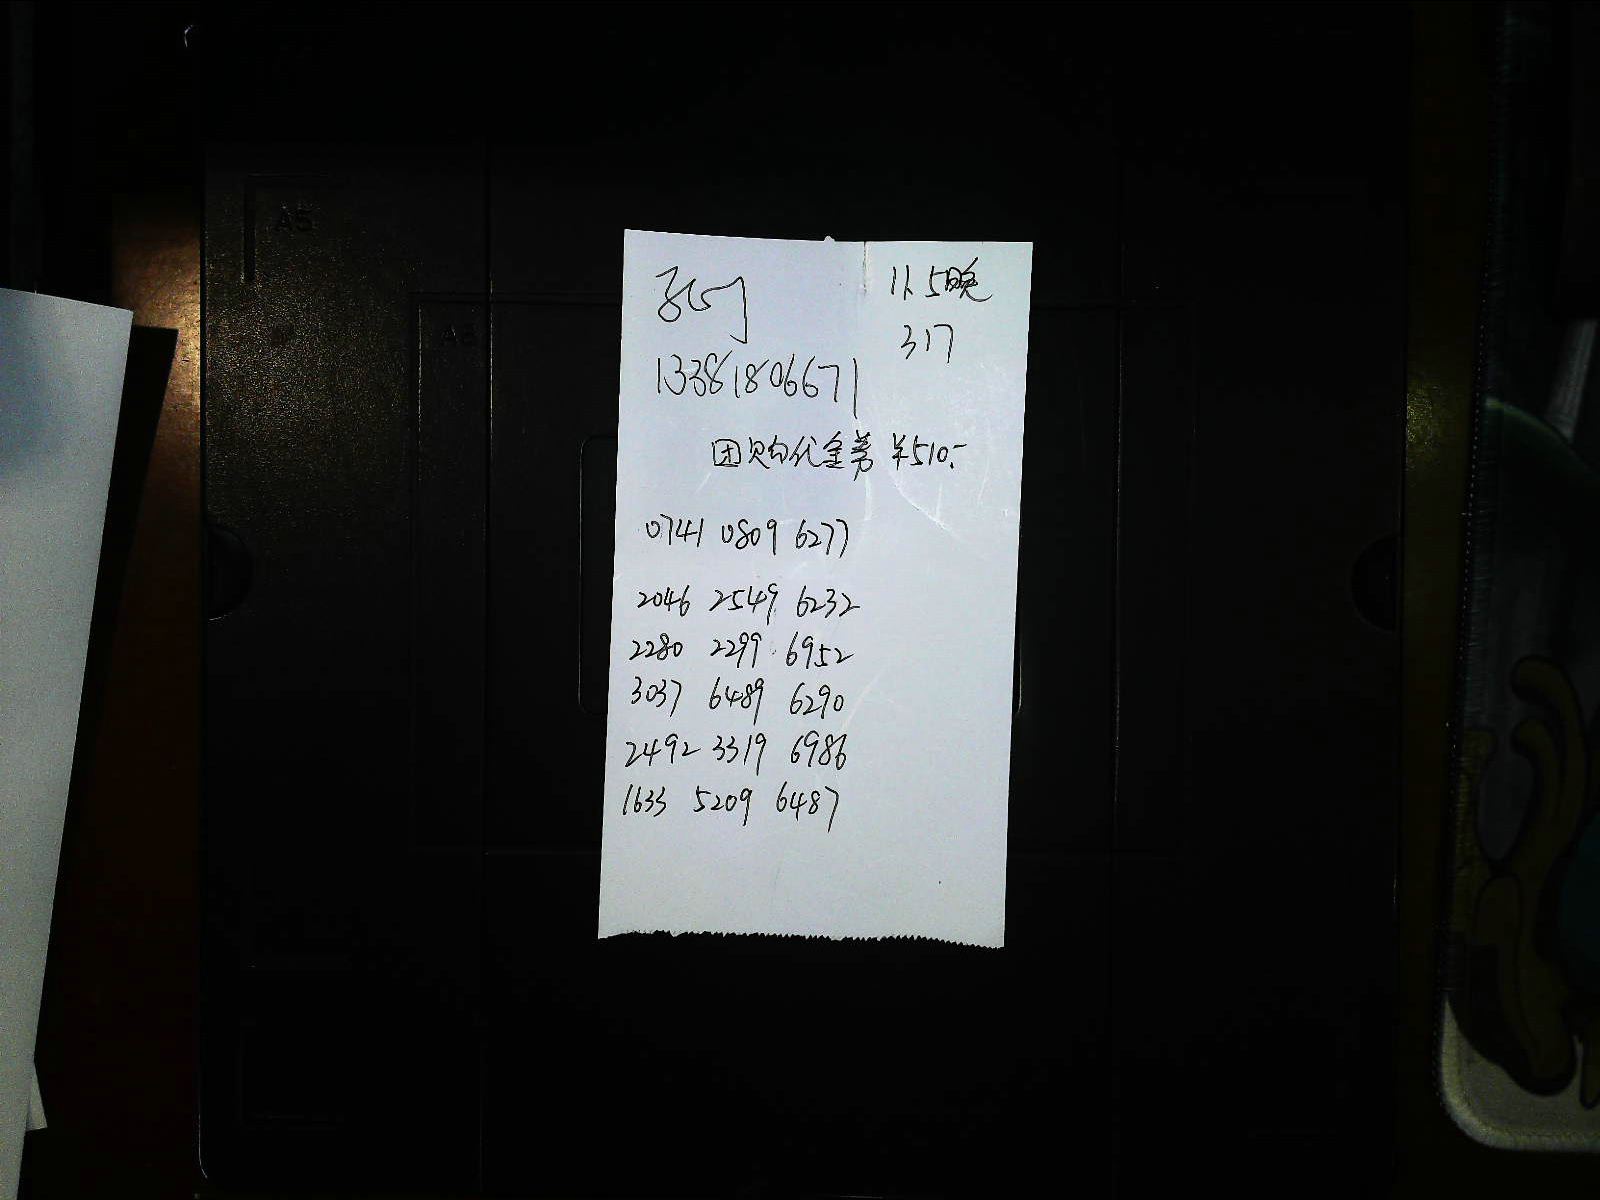 11.5晚
317
13381806671
团购代金券 ¥510.-
0741 0809 6277
2046 2549 6232
2280 2299 6952
3037 6489 6290
2492 3319 6986
1633 5209 6487
A5